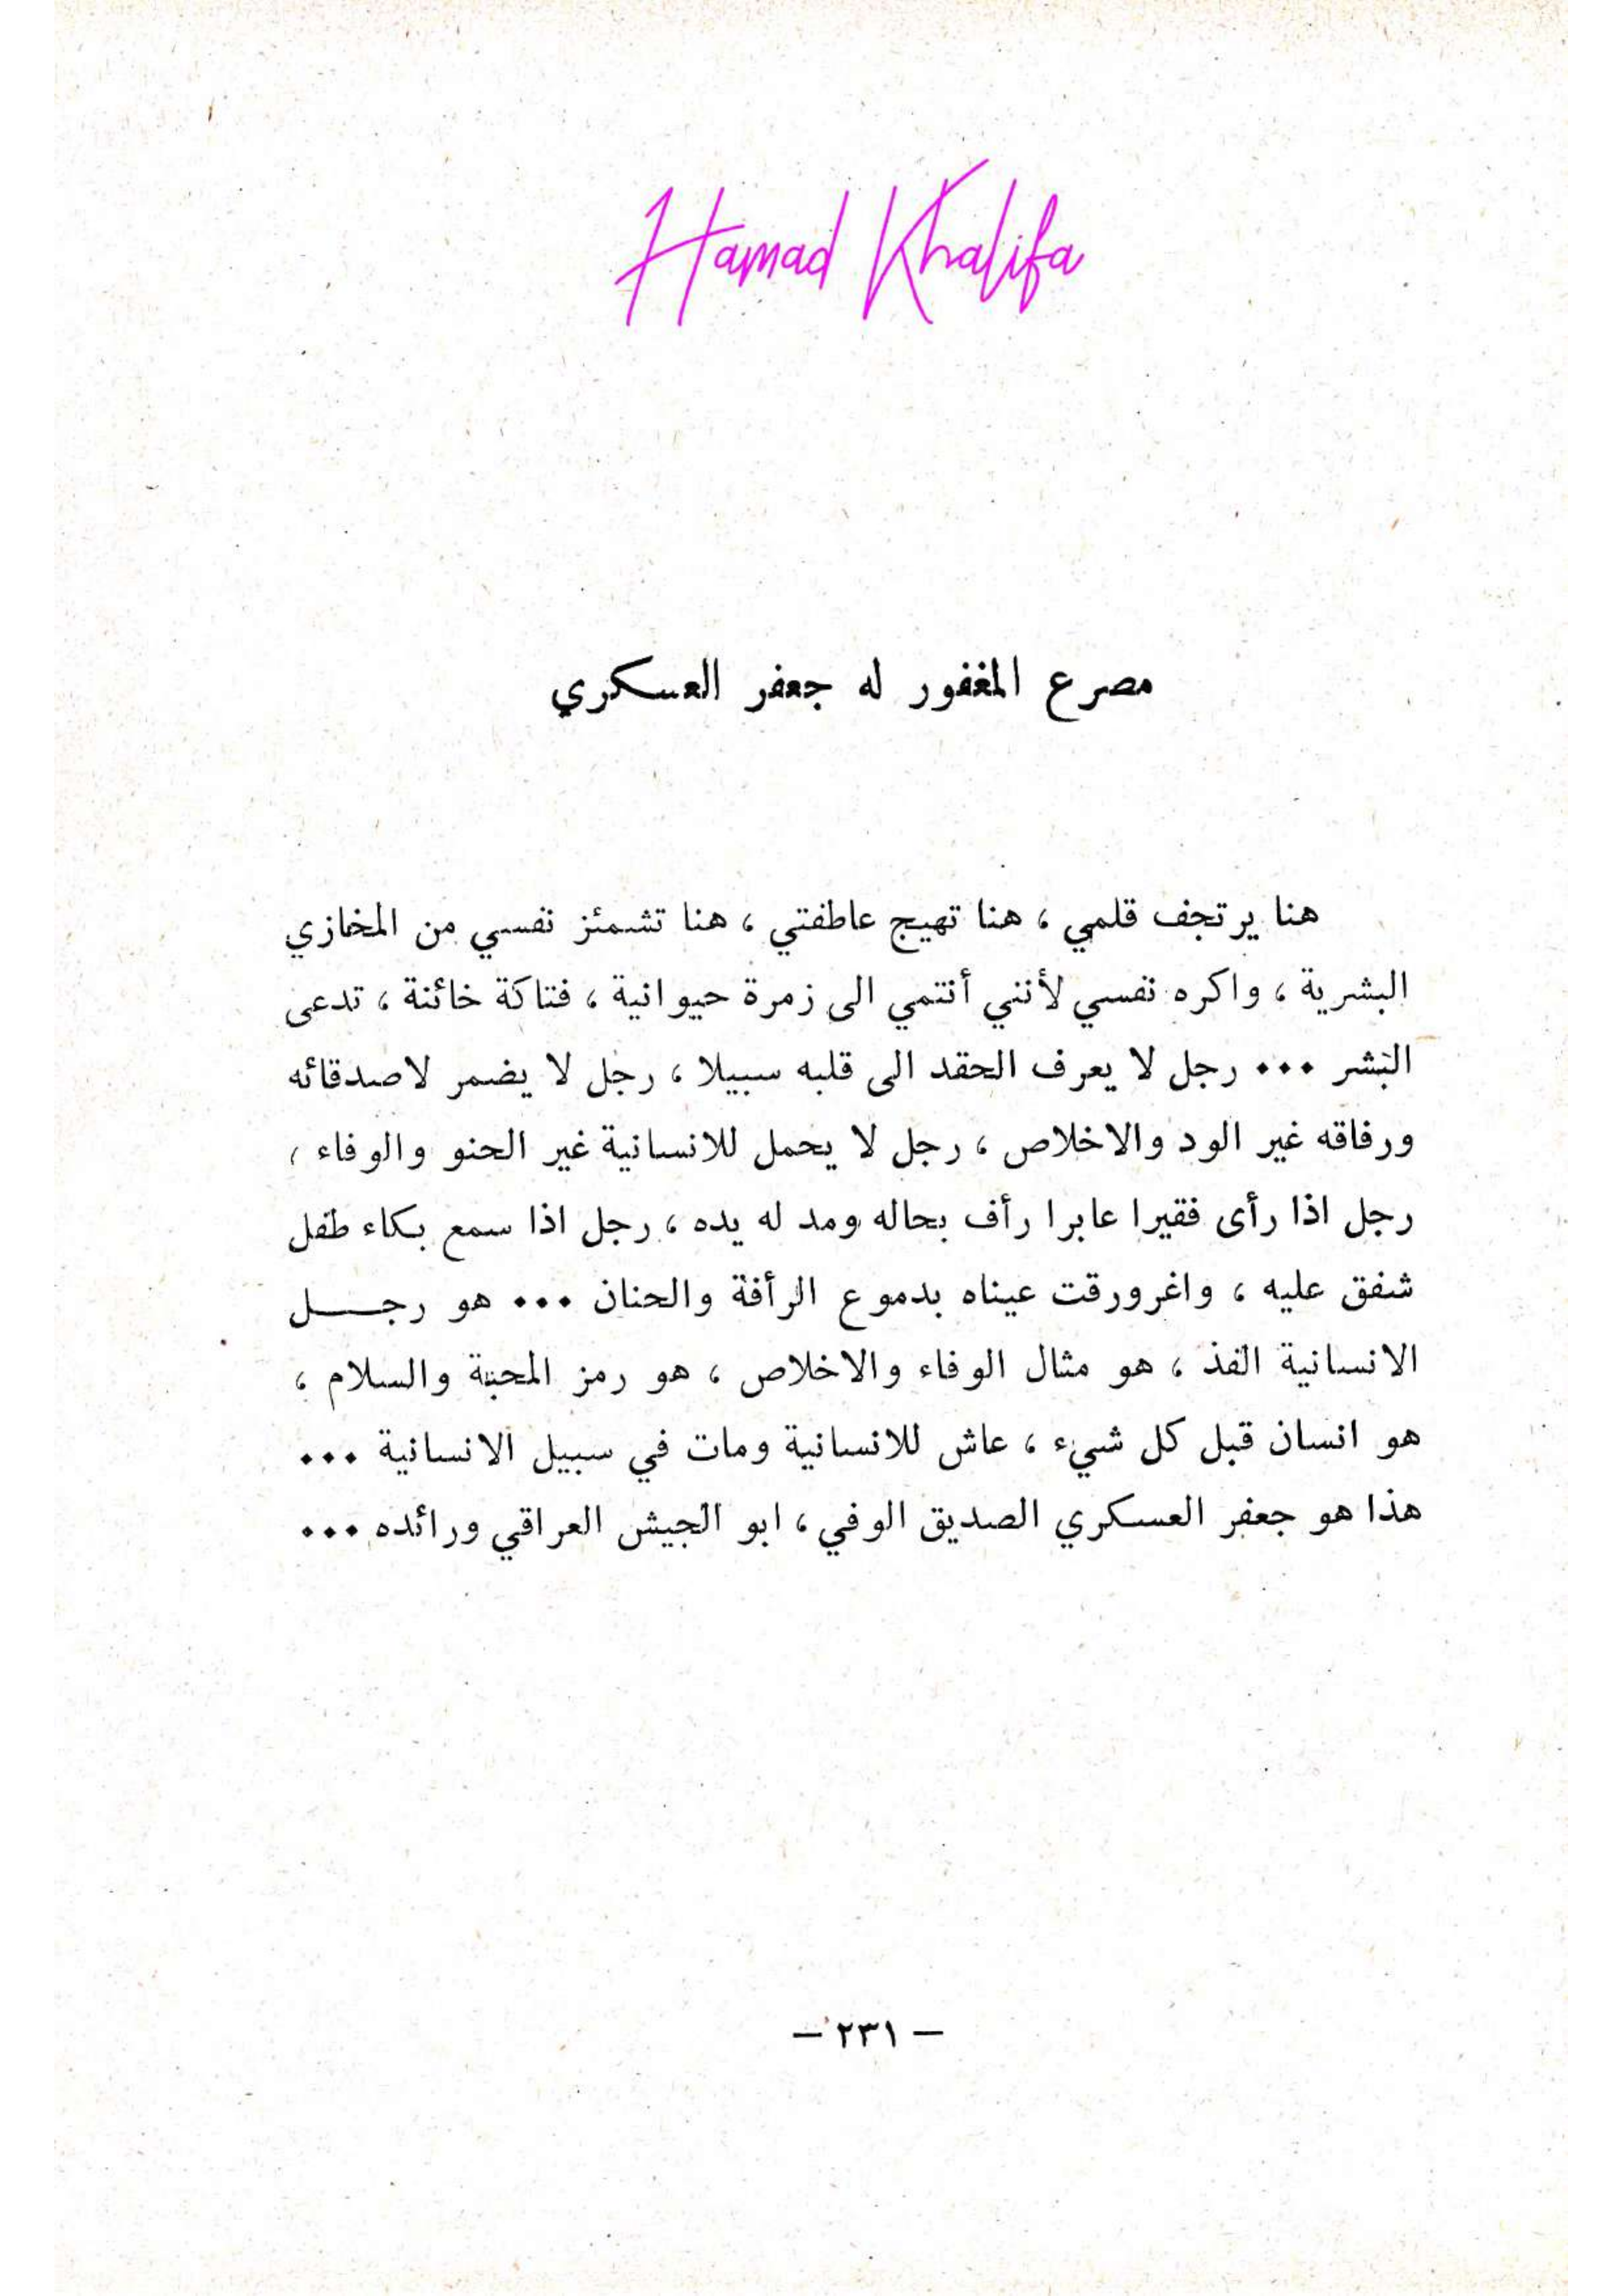 Hamad Khalifa
مصرع المغفور له جعفر العسكري
هنا يرتجف قلمي ، هنا تهيج عاطفتي ، هنا تشمئز نفسي من المخازي
البشرية ، واكره نفسي لأنني أنتمي الى زمرة حيوانية ، فتاكة خائنة ، تدعى
البشر ••• رجل لا يعرف الحقد الى قلبه سبيلا ، رجل لا يضمر لاصدقائه
ورفاقه غير الود والاخلاص ، رجل لا يحمل للانسانية غير الحنو والوفاء ،
رجل اذا رأى فقيرا عابرا رأف بحاله ومد له يده ، رجل اذا سمع بكاء طفل
شفق عليه ، واغرورقت عيناه بدموع الرأفة والحنان ••• هو رجـــل
الانسانية الفذ ، هو مثال الوفاء والاخلاص ، هو رمز المحبة والسلام ،
هو انسان قبل كل شيء ، عاش للانسانية ومات في سبيل الانسانية •••
هذا هو جعفر العسكري الصديق الوفي ، ابو الجيش العراقي ورائده •••
— ٢٣١ —